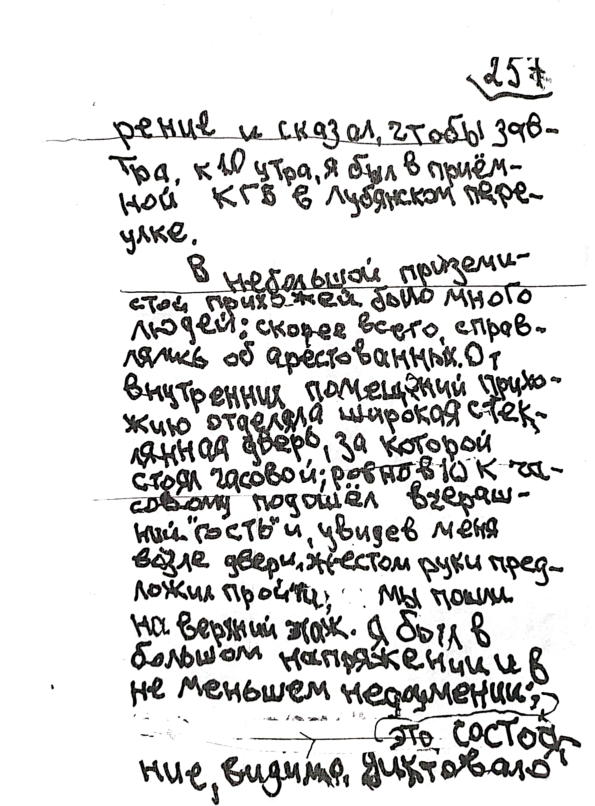 257
рение и сказал, чтобы зав-
тра, к 10 утра, я был в приём-
ной КГБ в Лубянском пере-
улке.
В небольшой приземи-
стой прихожей было много
людей: скорее всего, справ-
лялись об арестованных. От
внутренних помещений прихо-
жую отделяла широкая стек-
лянная дверь, за которой
стоял часовой; ровно в 10 к ча-
совому подошёл вчераш-
ний "гость" и, увидев меня
возле двери, жестом руки пред-
ложил пройти; мы пошли
на верхний этаж. Я был в
большом напряжении и в
не меньшем недоумении;
это состоя-
ние, видимо, диктовало